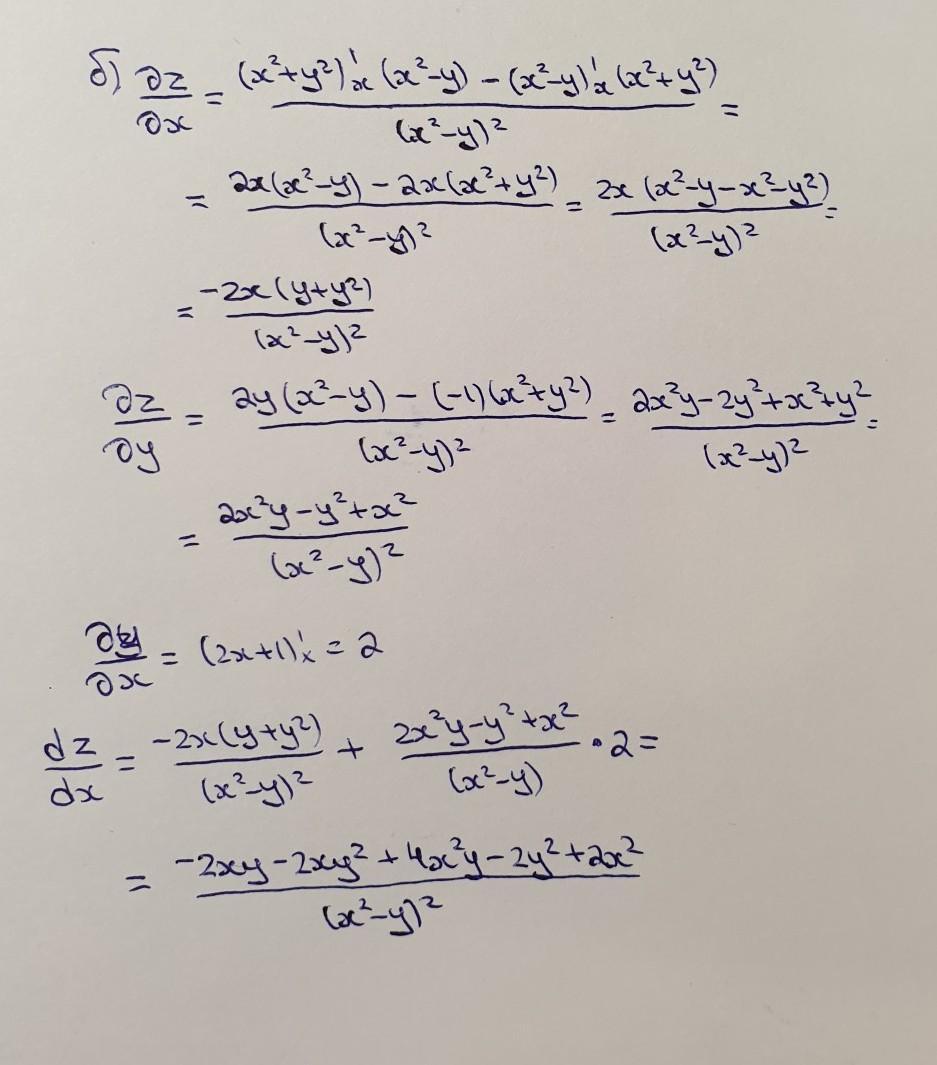 б) ∂z/∂x = ((x²+y²)'ₓ (x²-y) - (x²-y)'ₓ (x²+y²))/(x²-y)² =
= (2x(x²-y) - 2x(x²+y²))/(x²-y)² = (2x(x²-y-x²-y²))/(x²-y)² =
= (-2x(y+y²))/(x²-y)²
∂z/∂y = (2y(x²-y) - (-1)(x²+y²))/(x²-y)² = (2x²y-2y²+x²+y²)/(x²-y)² =
= (2x²y-y²+x²)/(x²-y)²
∂y/∂x = (2x+1)'ₓ = 2
dz/dx = (-2x(y+y²))/(x²-y)² + (2x²y-y²+x²)/(x²-y) · 2 =
= (-2xy-2xy²+4x²y-2y²+2x²)/(x²-y)²